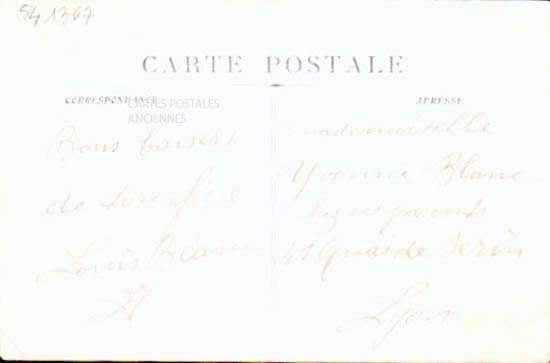 SH 1367
CARTE POSTALE
CORRESPONDANCE
CARTES POSTALES
ANCIENNES
ADRESSE
Bons baisers
de ton frère
Louis Blanc
Mademoiselle
Yvonne Blanc
chez ses parents
41 Quai de Serin
Lyon